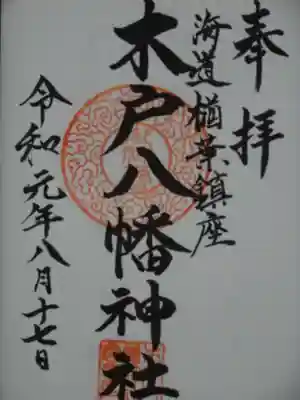 奉拝
海道楢葉鎮座
木戸八幡神社
令和元年八月十七日